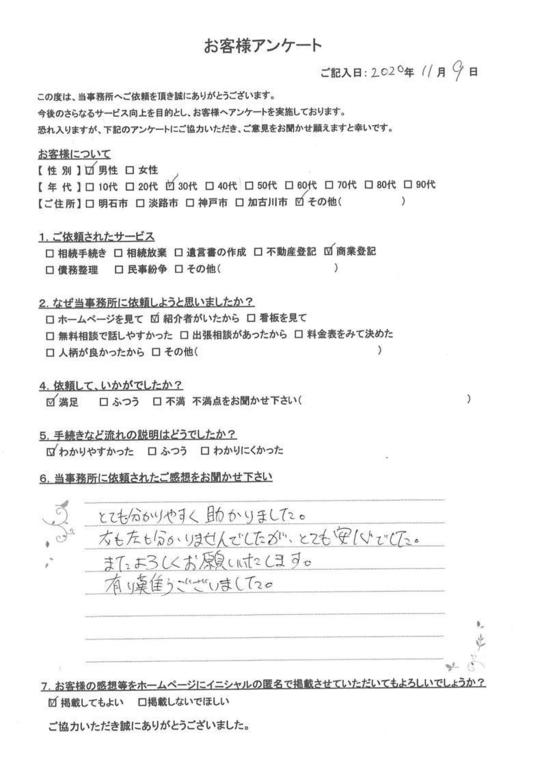 お客様アンケート
ご記入日：2020年 11月 9日
この度は、当事務所へご依頼を頂き誠にありがとうございます。
今後のさらなるサービス向上を目的とし、お客様へアンケートを実施しております。
恐れ入りますが、下記のアンケートにご協力いただき、ご意見をお聞かせ願えますと幸いです。
お客様について
【 性 別 】☑ 男性 □ 女性
【 年 代 】□ 10代 □ 20代 ☑ 30代 □ 40代 □ 50代 □ 60代 □ 70代 □ 80代 □ 90代
【ご住所】□ 明石市 □ 淡路市 □ 神戸市 □ 加古川市 ☑ その他( )
1．ご依頼されたサービス
□ 相続手続き □ 相続放棄 □ 遺言書の作成 □ 不動産登記 ☑ 商業登記
□ 債務整理 □ 民事紛争 □ その他( )
2．なぜ当事務所に依頼しようと思いましたか？
□ ホームページを見て ☑ 紹介者がいたから □ 看板を見て
□ 無料相談で話しやすかった □ 出張相談があったから □ 料金表をみて決めた
□ 人柄が良かったから □ その他( )
4．依頼して、いかがでしたか？
☑ 満足 □ ふつう □ 不満 不満点をお聞かせ下さい( )
5．手続きなど流れの説明はどうでしたか？
☑ わかりやすかった □ ふつう □ わかりにくかった
6．当事務所に依頼されたご感想をお聞かせ下さい
とても分かりやすく助かりました。
右も左も分かりませんでしたが、とても安心でした。
またよろしくお願いいたします。
有り難うございました。
7．お客様の感想等をホームページにイニシャルの匿名で掲載させていただいてもよろしいでしょうか？
☑ 掲載してもよい □掲載しないでほしい
ご協力いただき誠にありがとうございました。